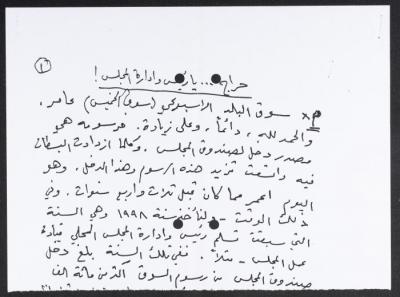 (١)
حراج... يا رئيس وادارة المجلس!
** سوق البلد الاسبوعي (سوق الخميس) عامر،
والحمد لله، دائماً، وعلى زيادة. فرسومه هي
مصدر دخل لصندوق المجلس. وكلما ازدادت البسطات
فيه واتسعت تزيد هذه الرسوم وهذا الدخل. وهو
اليوم اعمر مما كان قبل ثلاث واربع سنوات. وفي
ذلك الوقت - ولنأخذ سنة ١٩٩٨ وهي السنة
التي سبقت تسلم رئيس وادارة المجلس المحلي قيادة
عمل المجلس - مثلاً. ففي تلك السنة بلغ دخل
صندوق المجلس من رسوم السوق اكثر من مائة الف